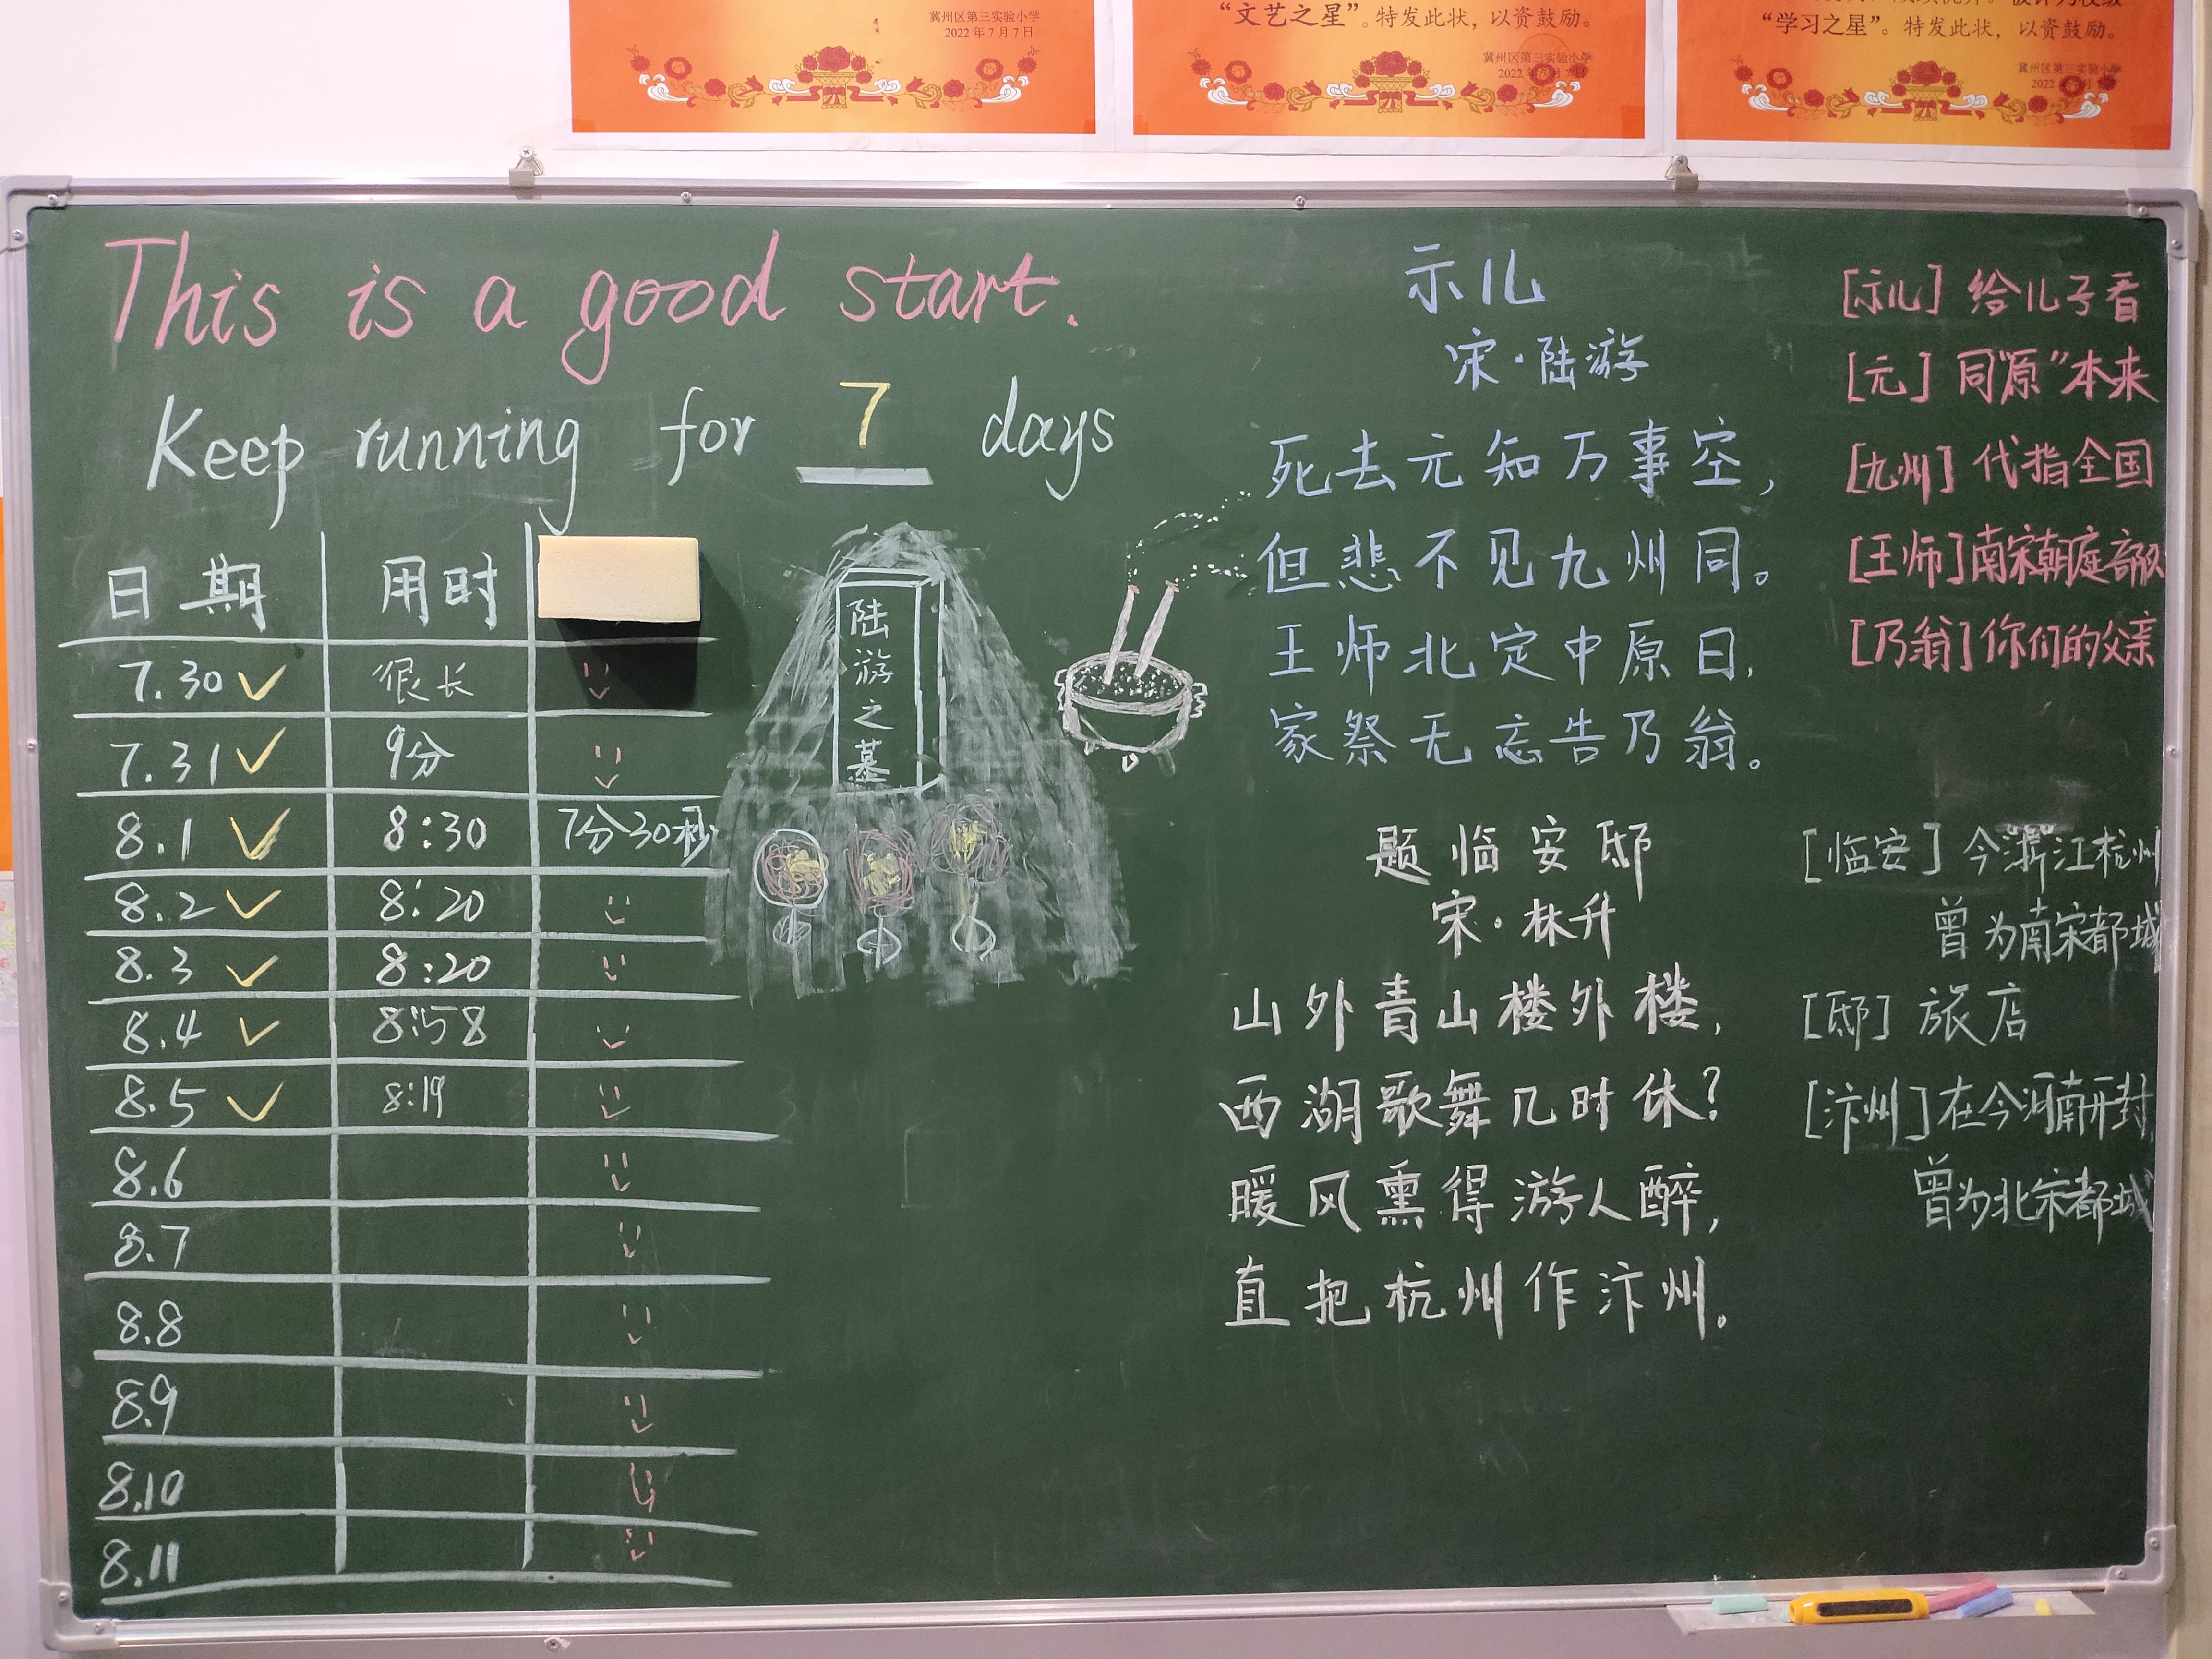 冀州区第三实验小学
2022年7月7日
“文艺之星”。特发此状，以资鼓励。
冀州区第三实验小学
“学习之星”。特发此状，以资鼓励。
冀州区第三实验小学
This is a good start.
Keep running for 7 days
日期 用时
7.30 很长
7.31 9分
8.1 8:30 7分30秒
8.2 8:20
8.3 8:20
8.4 8:58
8.5 8:19
8.6
8.7
8.8
8.9
8.10
8.11
陆游之墓
示儿
宋·陆游
死去元知万事空，
但悲不见九州同。
王师北定中原日，
家祭无忘告乃翁。
[示儿] 给儿子看
[元] 同“原”本来
[九州] 代指全国
[王师]南宋朝庭部队
[乃翁]你们的父亲
题临安邸
宋·林升
山外青山楼外楼，
西湖歌舞几时休？
暖风熏得游人醉，
直把杭州作汴州。
[临安] 今浙江杭州
曾为南宋都城
[邸] 旅店
[汴州]在今河南开封，
曾为北宋都城